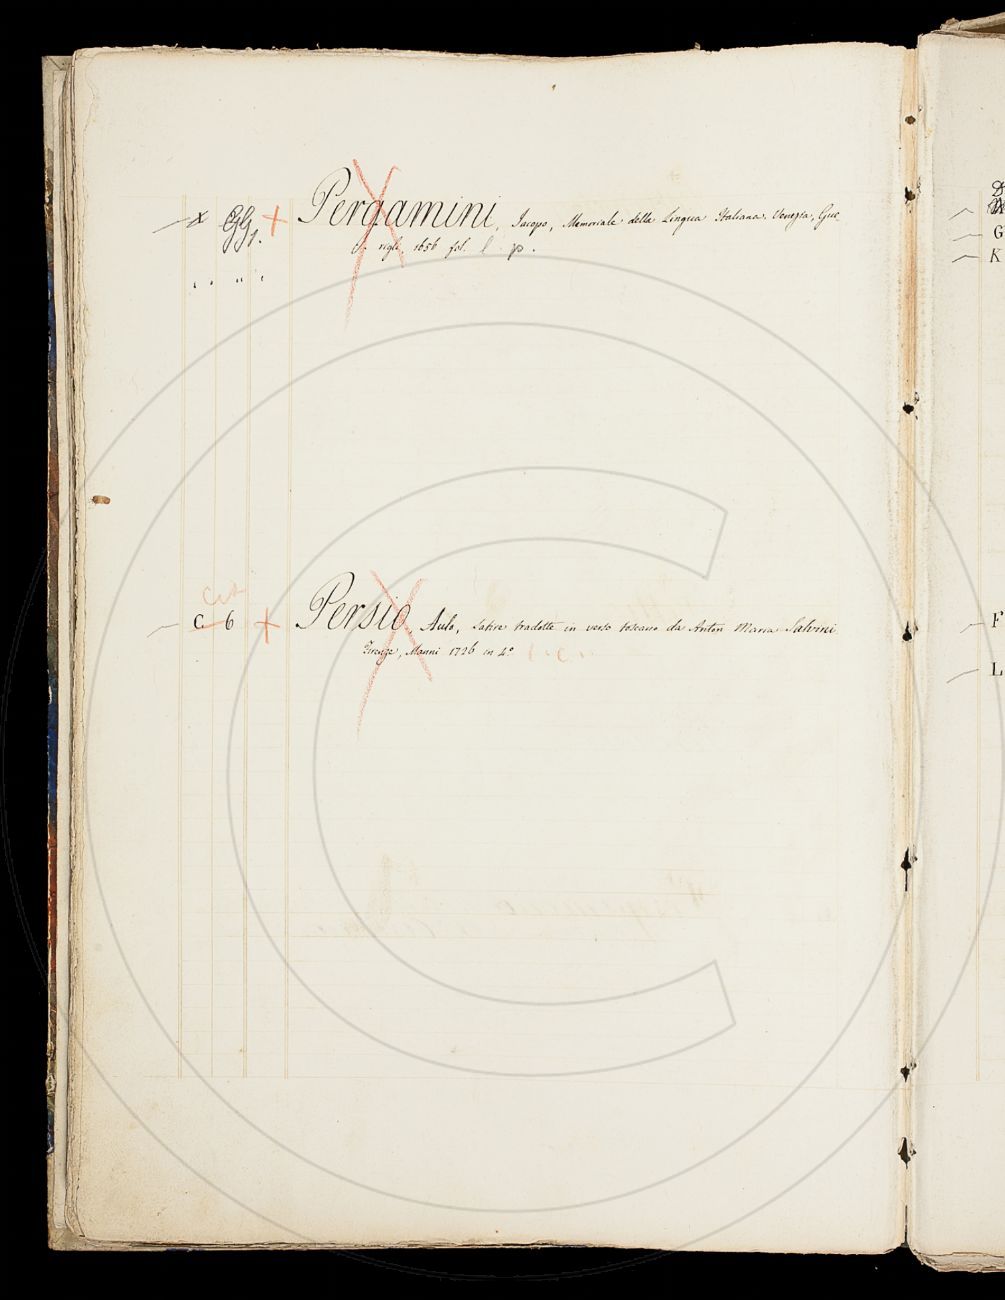 Pergamini, Jacopo, Memoriale della Lingua Italiana. Venezia, Gue
rigli, 1656 fol. l. p.
Cit
C 6 + Persio, Aulo, Satire tradotte in verso toscano da Anton Maria Salvini
Firenze, Manni 1726 in 4.°
G
K
F
L